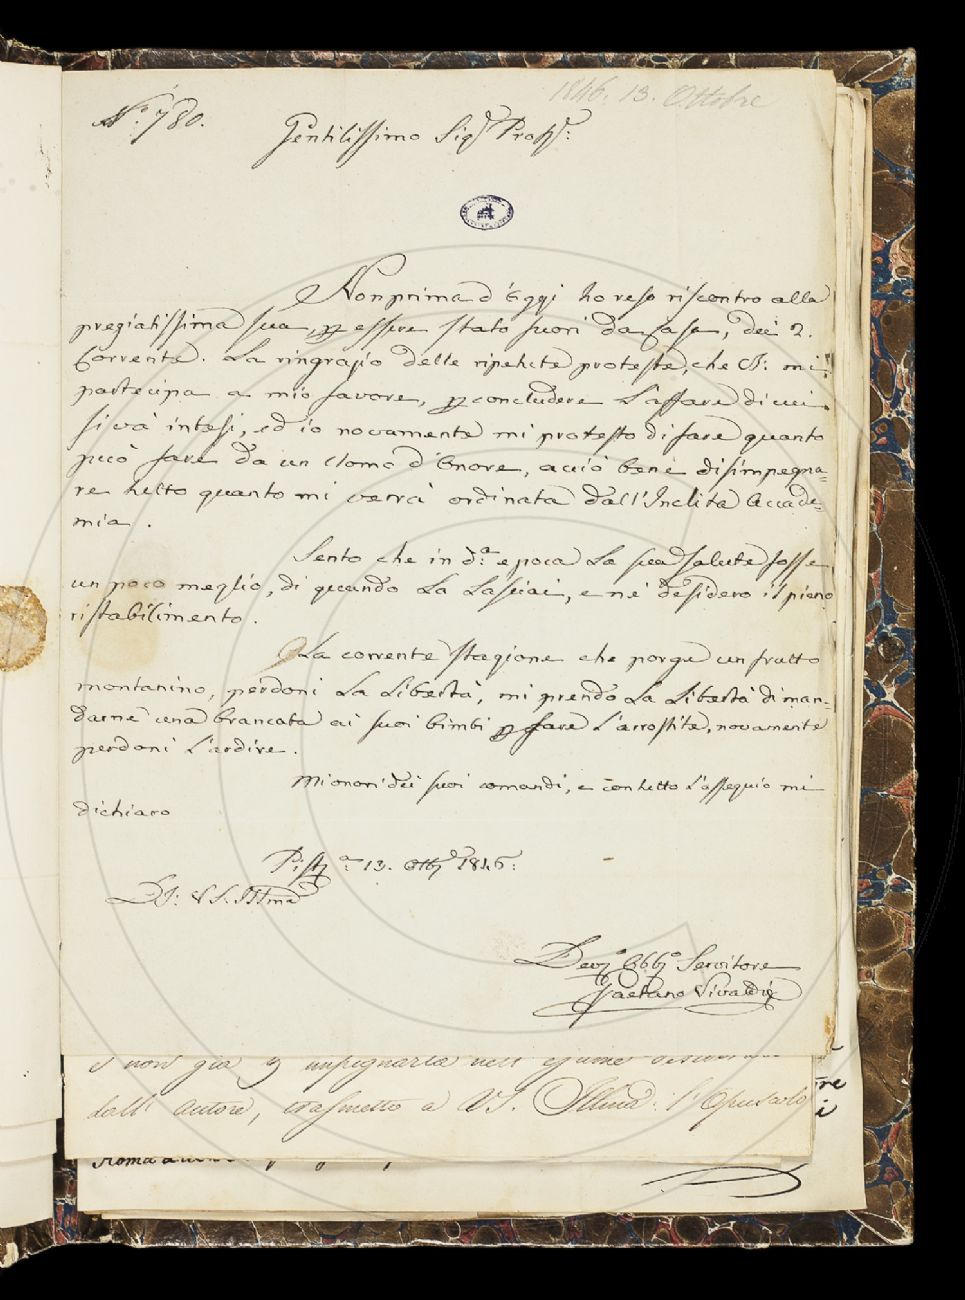 1846. 13. Ottobre
N.º 780.
Gentilissimo Sig.r Prof.r
Non prima d'Oggi ho reso riscontro alla
pregiatissima sua, p essere stato fuori da Casa, dei 2.
Corrente. La ringrazio delle ripetute proteste, che mi
partecipa a mio favore, p concludere L'affare di cui
si và intesi, ed io novamente mi protesto di fare quanto
può fare da un Uomo d'Onore, acciò bene disimpegna=
re tutto quanto mi verrà ordinata dall'Inclita Accade=
mia.
Sento che in d.a epoca La sua salute fosse
un poco meglio, di quando La Lasciai, e ne desidero il pieno
ristabilimento.
La corrente stagione che porge un frutto
montanino, perdoni La Libertà, mi prendo La Libertà di man=
darne una brancata ai suoi bimbi p fare L'arrostite, novamente
perdoni L'ardire.
Mi onori dei suoi comandi, e con tutto L'ossequio mi
dichiaro
13. 1846.
V.S. Illma
Dev.o Obb.o Servitore
Gaetano Vivaldi
e non già p impegnarla nell'
dall' autore, trasmetto a V.S. Illma: l'Opuscolo
Roma